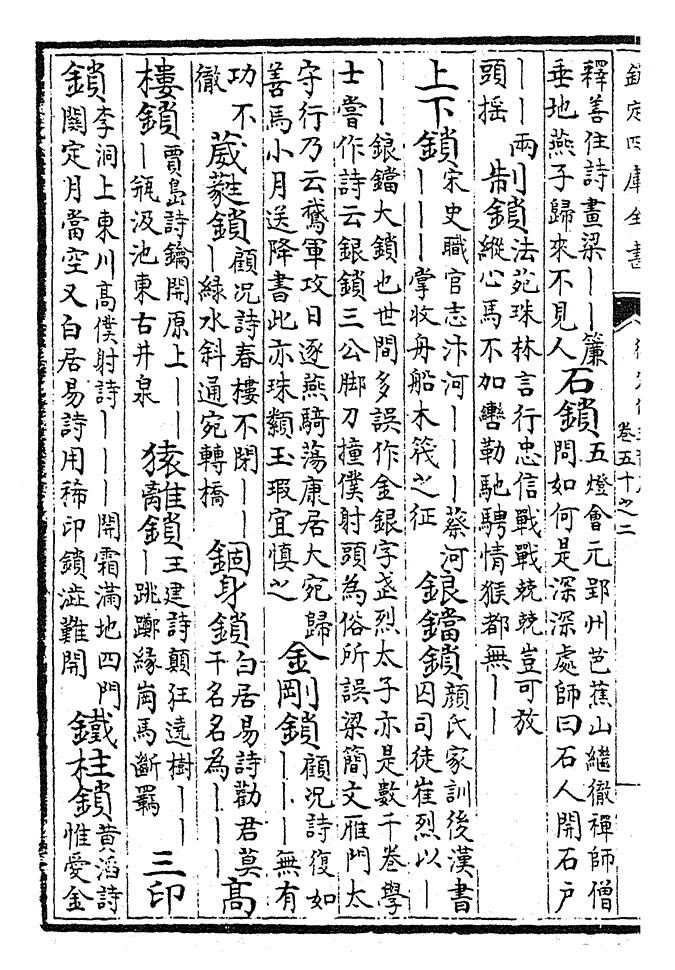 欽定四庫全書
卷五十之二
釋善住詩畫梁——簾
垂地燕子歸來不見人
石鎖
五燈會元郢州芭蕉山繼徹禪師僧
問如何是深深處師曰石人開石戶
——兩
頭揺
制鎖
法苑珠林言行忠信戰戰兢兢豈可放
縱心馬不加轡勒馳騁情猴都無——
上下鎖
宋史職官志汴河———蔡河
———掌收舟船木筏之征
鋃鐺鎖
顔氏家訓後漢書
囚司徒崔烈以—
——鋃鐺大鎖也世間多誤作金銀字武烈太子亦是數千卷學
士嘗作詩云銀鎖三公脚刀撞僕射頭為俗所誤梁簡文雁門太
守行乃云鵞軍攻日逐燕騎蕩康居大宛歸
善馬小月送降書此亦珠纇玉瑕宜慎之
金剛鎖
顧况詩復如
———無有
功不
徹
葳蕤鎖
顧况詩春樓不閉——
—緑水斜通宛轉橋
錮身鎖
白居易詩勸君莫
干名名為———
高
樓鎖
賈島詩鑰開原上——
—瓶汲池東古井泉
猿離鎖
王建詩顛狂遠樹——
—跳躑緣崗馬斷羈
三印
鎖
李洞上東川高僕射詩———開霜滿地四門
關定月當空又白居易詩用稀印鎖澁難開
鐵柱鎖
黄滔詩
惟愛金